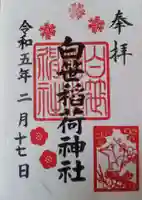 奉拝
白笹稲荷神社
白笹
稲荷
神社
令和五年二月十七日